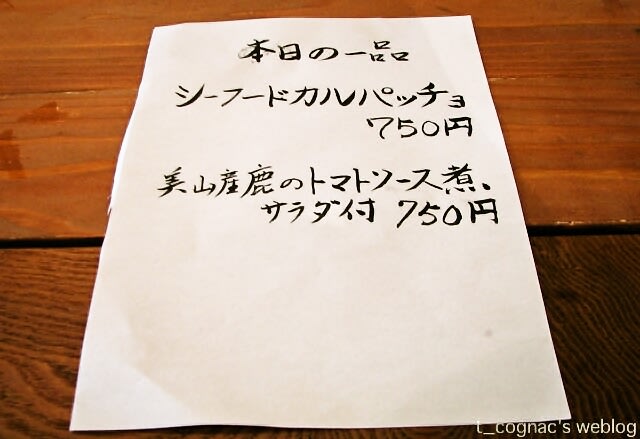 本日の一品
シーフードカルパッチョ
750円
美山産鹿のトマトソース煮。
サラダ付 750円
t_cognac's weblog